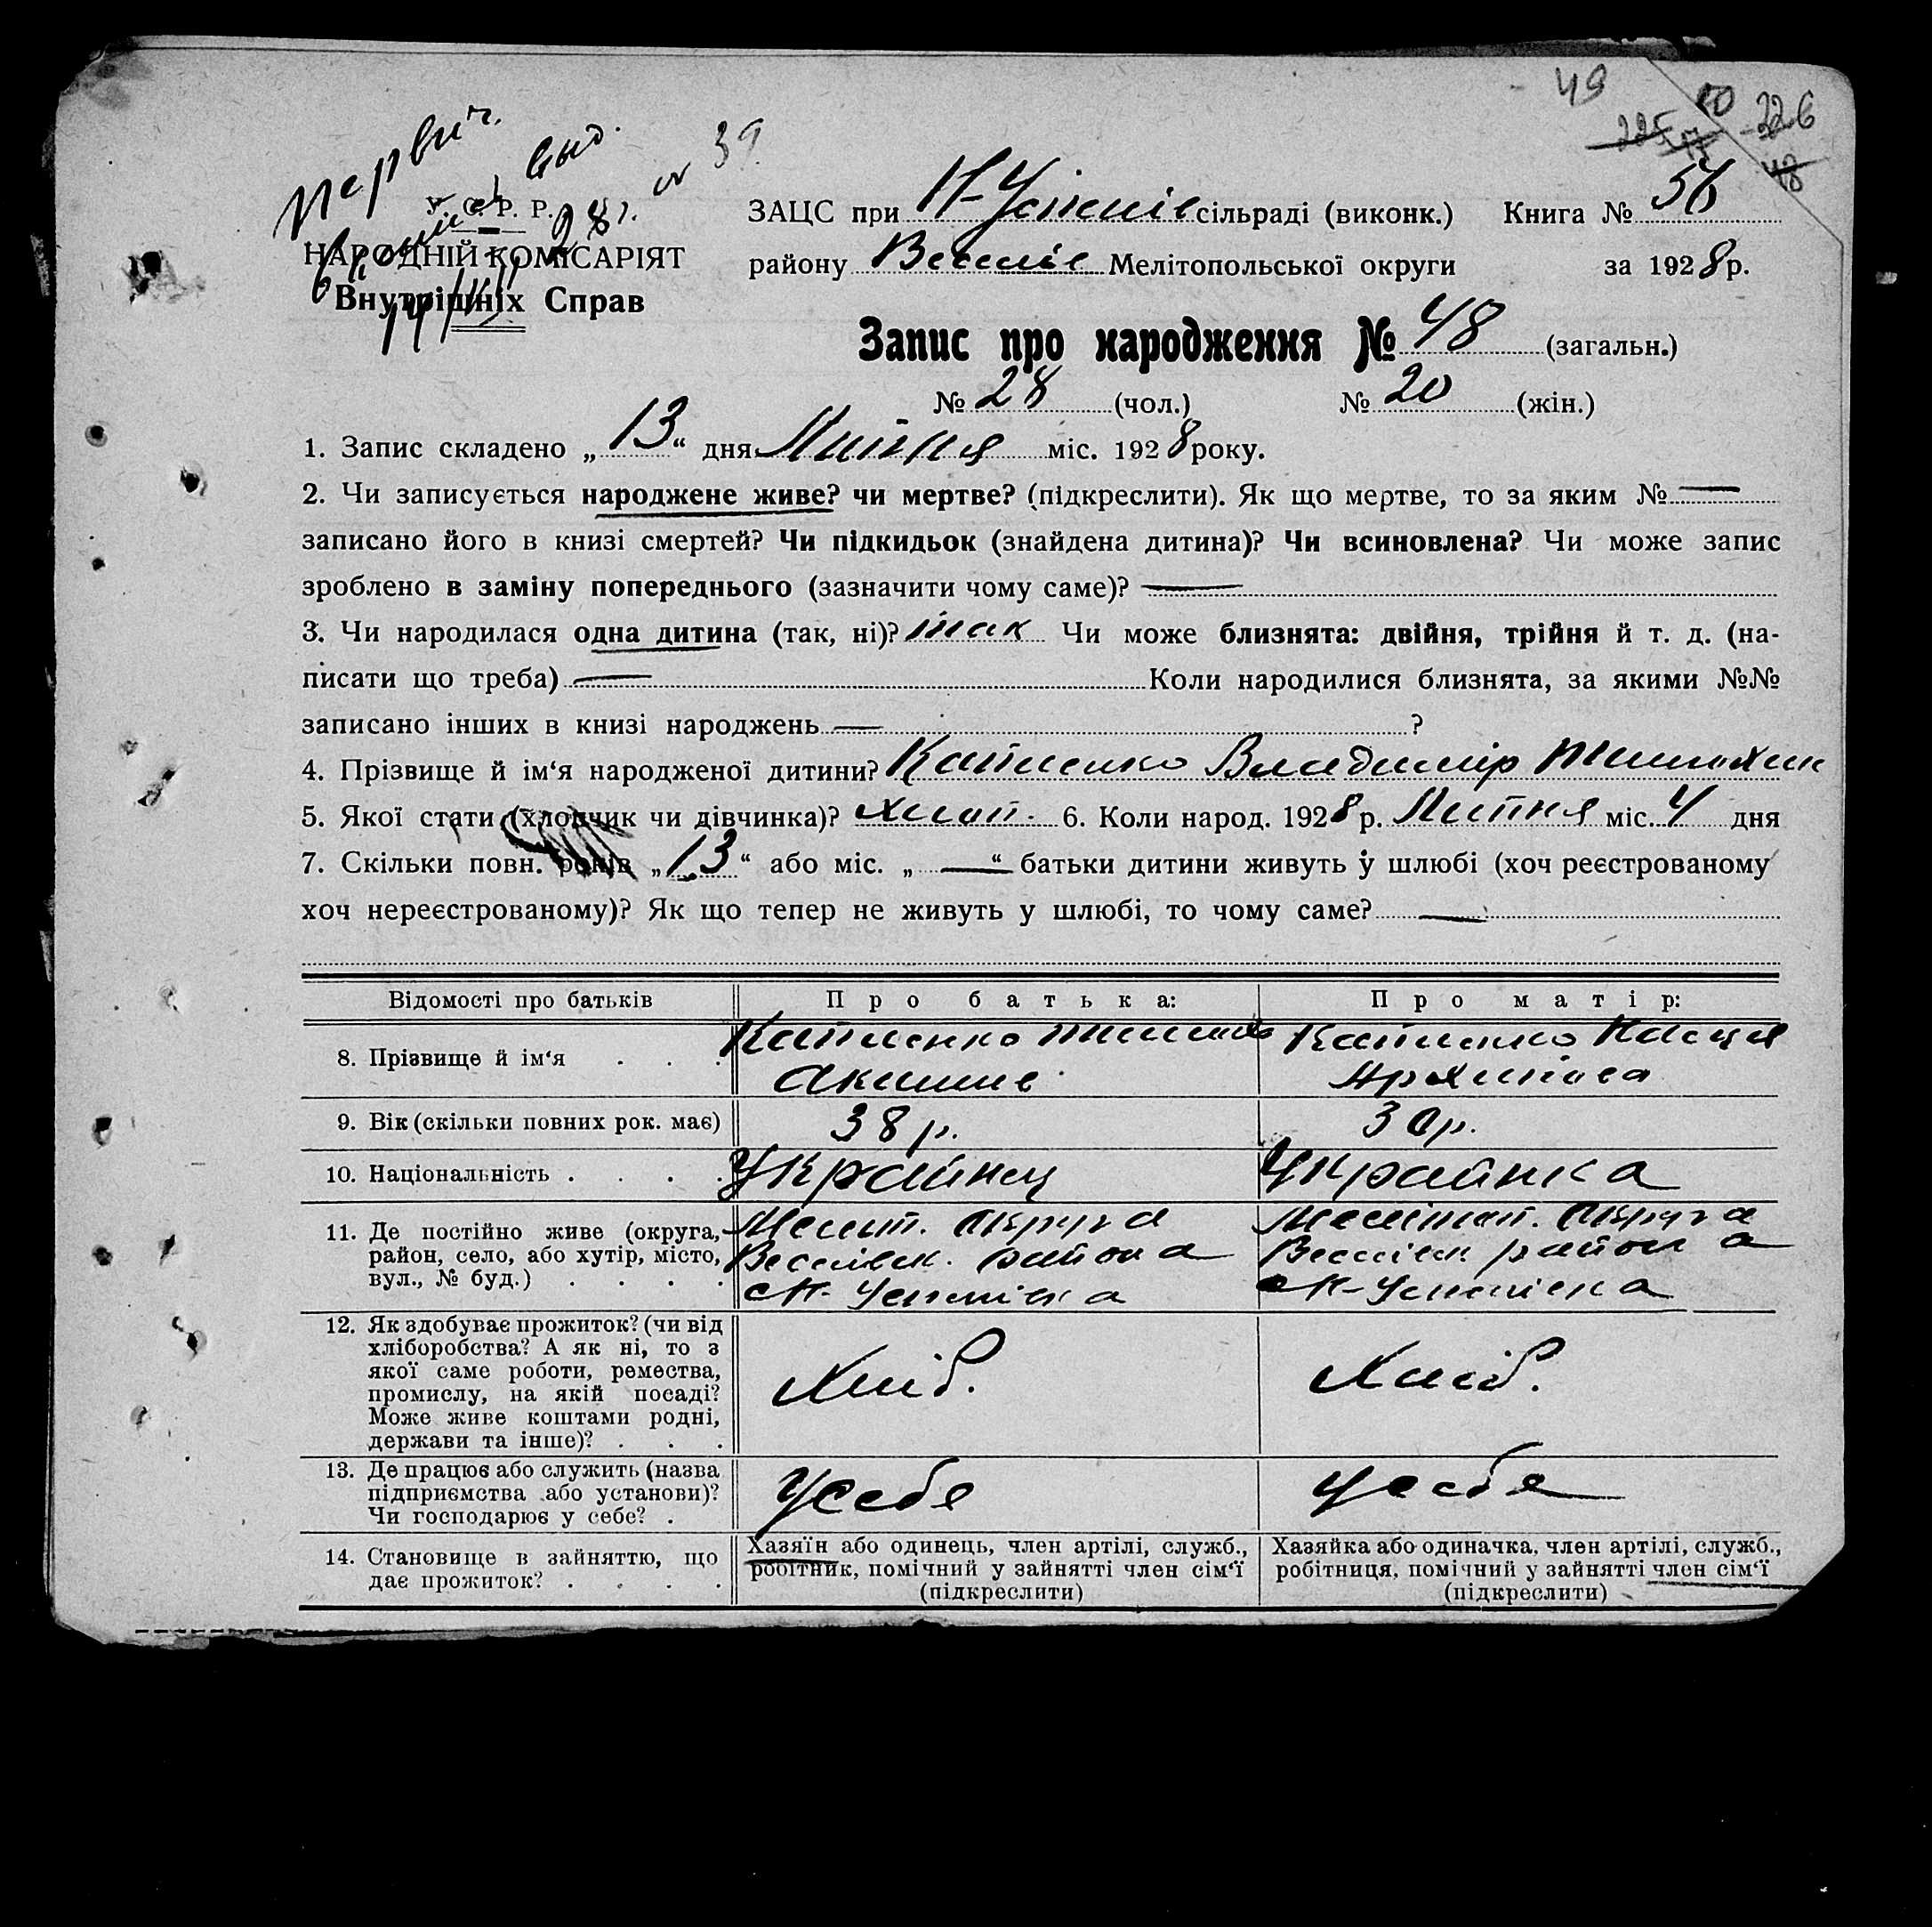 49
50 226
48
Первич. выд.
28 г.
39
У. С. Р. Р.
НАРОДНІЙ КОМІСАРІЯТ
Внутрішніх Справ
ЗАЦС при Н-Успенів сільраді (виконк.) Книга № 56
району Веселів Мелітопольської округи за 1928 р.
Запис про народження № 48 (загальн.)
№ 28 (чол.) № 20 (жін.)
1. Запис складено „13“ дня Липня міс. 1928 року.
2. Чи записується народжене живе? чи мертве? (підкреслити). Як що мертве, то за яким № —
записано його в книзі смертей? Чи підкидьок (знайдена дитина)? Чи всиновлена? Чи може запис
зроблено в заміну попереднього (зазначити чому саме)? —
3. Чи народилася одна дитина (так, ні)? так Чи може близнята: двійня, трійня й т. д. (на-
писати що треба) — Коли народилися близнята, за якими №№
записано інших в книзі народжень — ?
4. Прізвище й ім‘я народженої дитини? Капленко Владимір
5. Якої стати (хлопчик чи дівчинка)? хлоп. 6. Коли народ. 1928 р. Липня міс. 4 дня
7. Скільки повн. років „13“ або міс. „—“ батьки дитини живуть у шлюбі (хоч реєстрованому
хоч нереєстрованому)? Як що тепер не живуть у шлюбі, то чому саме? —
Відомості про батьків Про батька: Про матір:
8. Прізвище й ім‘я . . . Капленко Капленко
Архипова
9. Вік (скільки повних рок. має) 38 р. 30 р.
10. Національність . . . . Украйнец Украйнка
11. Де постійно живе (округа, район, село, або хутір, місто, вул., № буд.) . . . .
Мелит. Округа
Веселівск. района
Н-Успенівка
Мелітоп. Округа
Веселівск района
Н-Успенівка
12. Як здобуває прожиток? (чи від
хліборобства? А як ні, то з
якої саме роботи, ремества,
промислу, на якій посаді?
Може живе коштами родні,
держави та інше)? . . .
Хліб. Хліб.
13. Де працює або служить (назва
підприємства або установи)?
Чи господарює у себе? .
У себе У себе
14. Становище в зайняттю, що
дає прожиток? . . . .
Хазяїн або одинець, член артілі, служб.,
робітник, помічний у зайнятті член сім‘ї
(підкреслити)
Хазяйка або одиначка, член артілі, служб.,
робітниця, помічний у зайнятті член сім‘ї
(підкреслити)